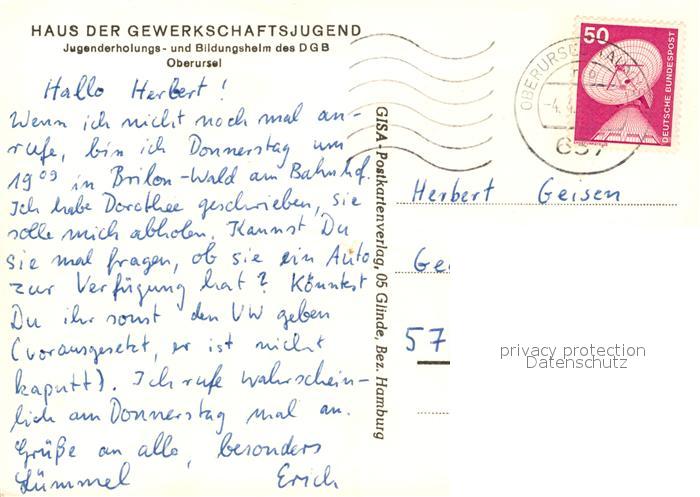 HAUS DER GEWERKSCHAFTSJUGEND
Jugenderholungs- und Bildungsheim des DGB
Oberursel
Hallo Herbert!
Wenn ich nicht noch mal an-
rufe, bin ich Donnerstag um
19⁰⁹ in Brilon-Wald am Bahnhof.
Ich habe Dorothee geschrieben, sie
solle mich abholen. Kannst Du
sie mal fragen, ob sie ein Auto
zur Verfügung hat? Könntest
Du ihr sonst den VW geben
(vorausgesetzt, er ist nicht
kaputt). Ich rufe wahrschein-
lich am Donnerstag mal an.
Grüße an alle, besonders
Lümmel Erich
GISA-Postkartenverlag, 05 Glinde, Bez. Hamburg
50
DEUTSCHE BUNDESPOST
OBERURSEL
Herbert Geisen
Ge
57
privacy protection
Datenschutz